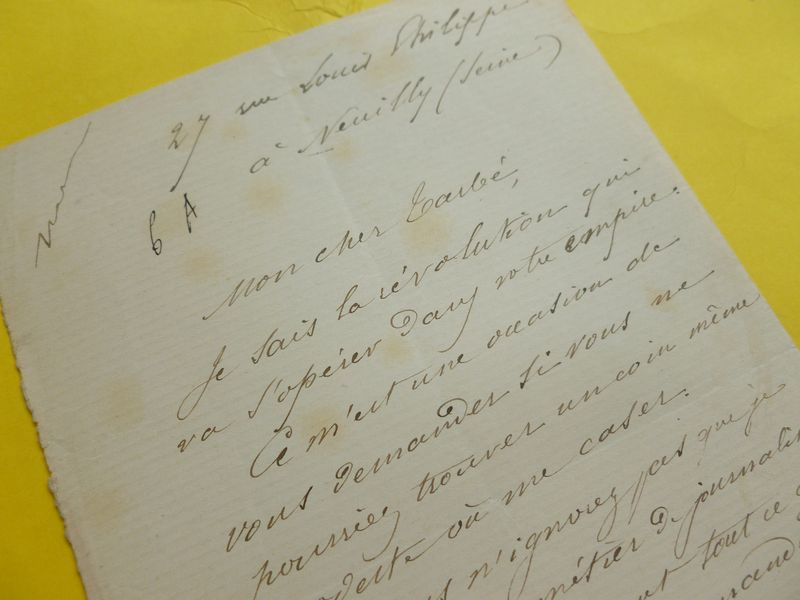 27 rue Louis Philippe
à Neuilly (Seine)
6 A
Mon cher Tarbé,
Je sais la révolution qui
va s'opérer dans votre empire.
Ce m'est une occasion de
vous demander si vous ne
pourriez trouver un coin même
modeste où me caser.
n'ignorez pas que je
métier de journalis
tout ce